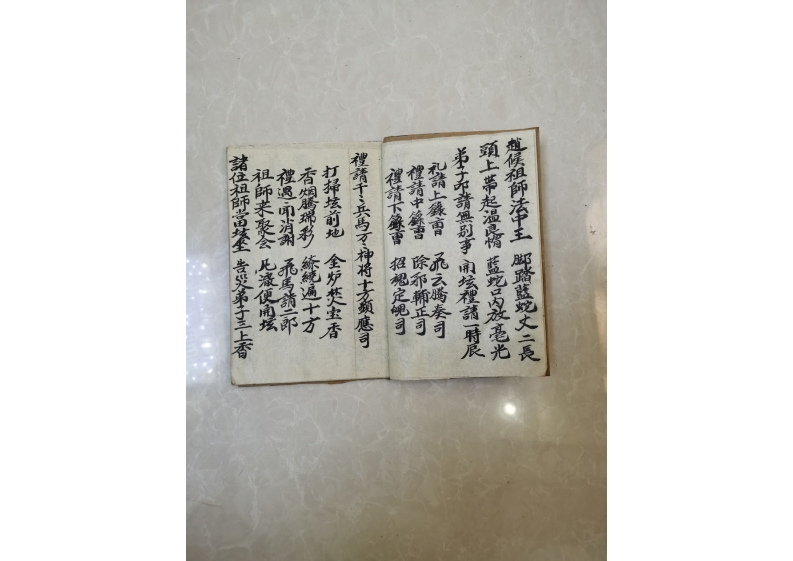 趙候祖師法中王 脚踏藍蛇丈二長
頭上帶起温良惰 藍蛇口内放毫光
弟子卬請無別事 開坛禮請一時辰
礼請上錄 飛云騰奏司
禮請中錄 除邪輔正司
禮請下錄 招魂定魄司
禮請千々兵馬万々神将十方顯應司
打掃坛前地 金炉焚宝香
香烟騰瑞彩 繚繞遍十方
禮遇 消謝 飛馬請二郎
祖師来聚会 此歳便開坛
諸位祖師當坛坐 告災弟子三上香